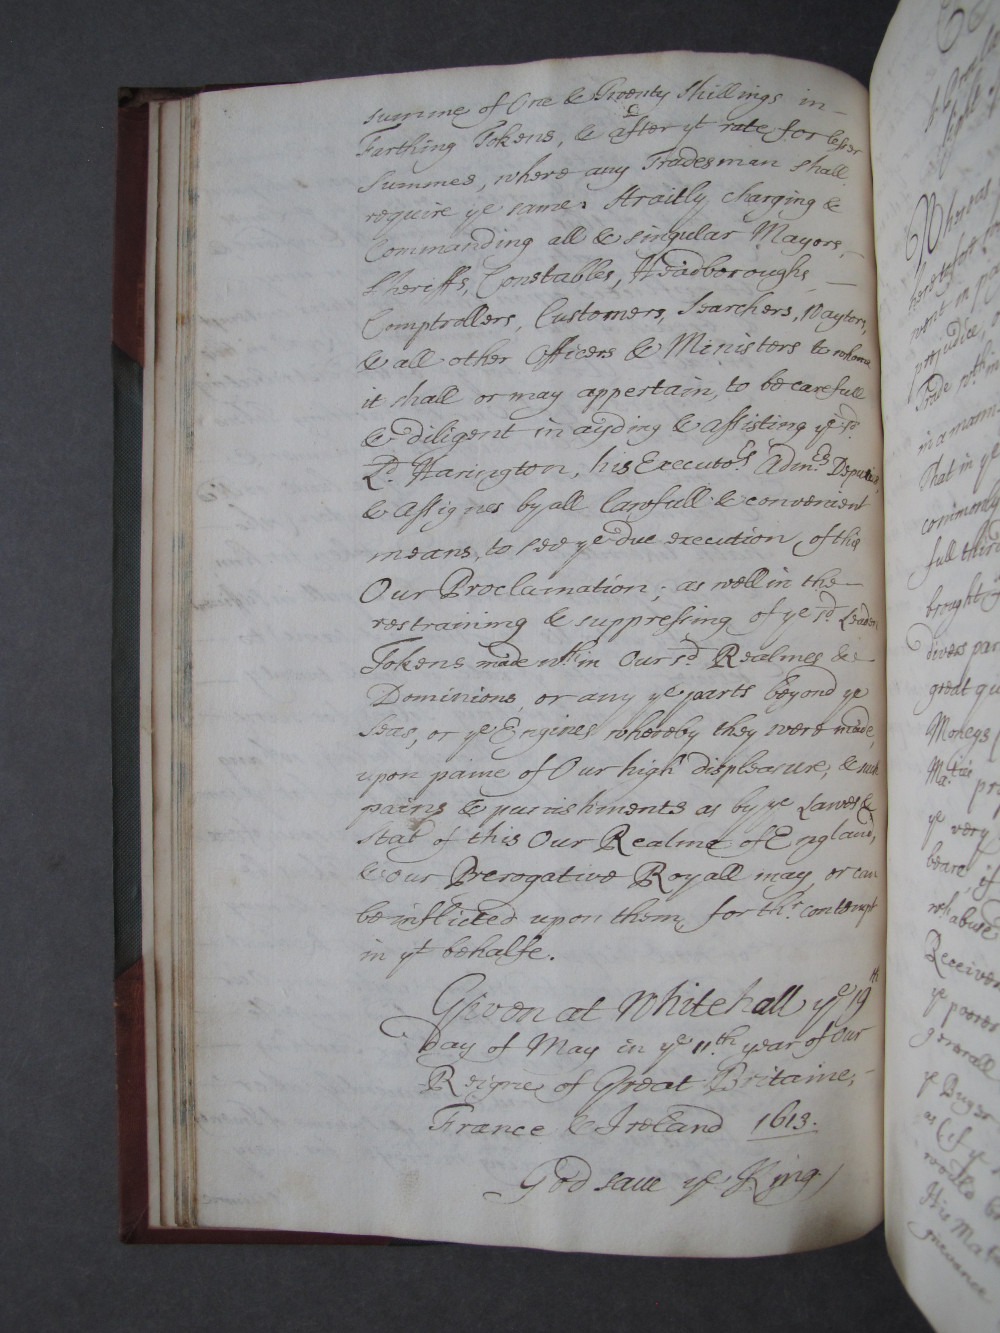 summe of One & Twenty Shillings in
Farthing Tokens, & after yt rate for lesser
Summes, where any Tradesman shall
require ye same: Straitly charging &
Commanding all & singular Mayors,
Sheriffs, Constables, Headboroughs
Comptrollers, Customers, Searchers, Waytors,
& all other Officers & Ministers to whome
it shall or may appertain, to be carefull
& diligent in ayding & Assisting ye sd.
Ld. Harington, his Executors Admrs Deputies,
& Assignes by all lawfull & convenient
means, to see ye due execution of this
Our Proclamation; as well in the
restraining & suppressing of ye sd. Leaden
Tokens made wth in Our sd Realmes &
Dominions, or any ye parts beyond ye
Seas, or ye Engines whereby they were made,
upon paine of Our high displeasure, & such
pains & punishments as by ye Lawes &
State of this Our Realme of England,
& our Prerogative Royall may, or can
be inflicted upon them, for thr. contempt
in yt behalfe.
Given at Whitehall ye 19th
day of May in ye 11th year of Our
Reigne of Great Britaine,
France & Ireland 1613.
God save ye King
Whereas
heretofore
went in
prejudice
Trade wth in
in a mann
That in ye
commonly
full third
brought
divers par
great qu
Moneys
Ma.ties pr
ye very
beare if
wch abuse
Receiver
ye poorer
generall
ye Buyer
as (if y
would b
His Ma
grievance